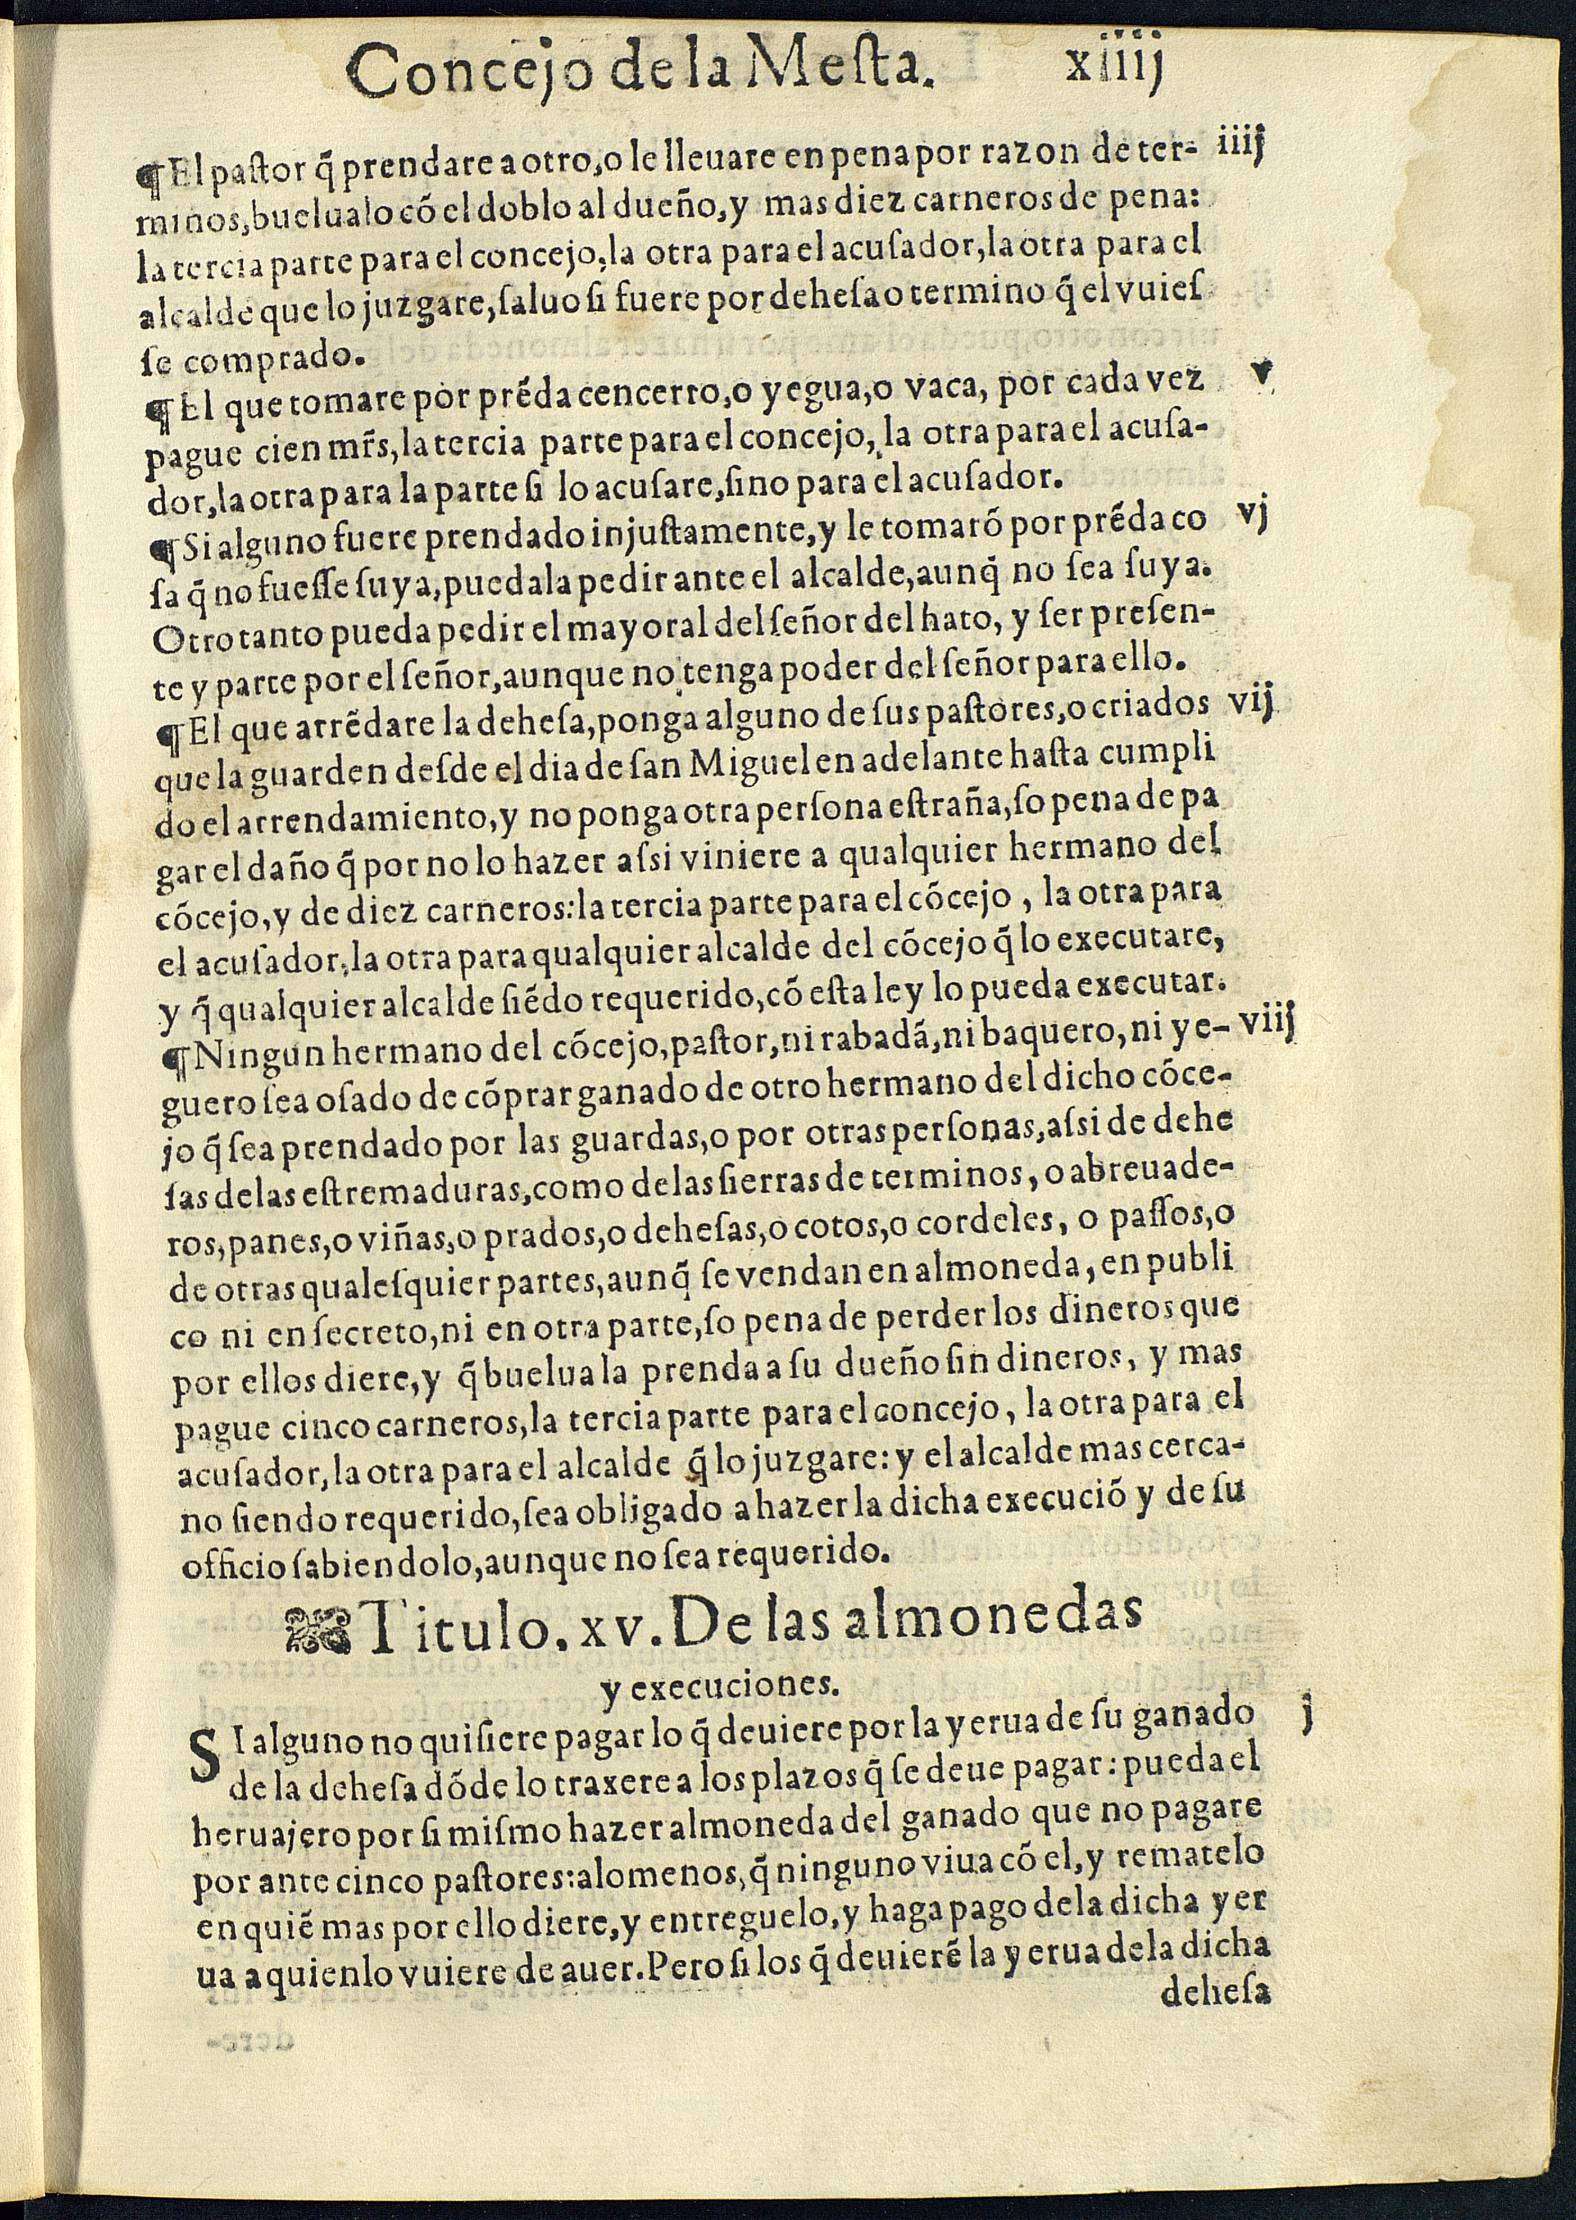 Concejo de la Meſta. xiiij
¶El paſtor q̃ prendare a otro, o le lleuare en pena por razon de ter- iiij
minos, buelualo cõ el doblo al dueño, y mas diez carneros de pena:
la tercia parte para el concejo, la otra para el acuſador, la otra para el
alcalde que lo juzgare, ſaluo ſi fuere por deheſa o termino q̃ el vuieſ
ſe comprado.
¶El que tomare por prẽda cencerro, o yegua, o vaca, por cada vez v
pague cien mr̃s, la tercia parte para el concejo, la otra para el acuſa-
dor, la otra para la parte ſi lo acuſare, ſino para el acuſador.
¶Si alguno fuere prendado injuſtamente, y le tomarõ por prẽda co vj
ſa q̃ no fueſſe ſuya, puedala pedir ante el alcalde, aunq̃ no ſea ſuya.
Otro tanto pueda pedir el mayoral del ſeñor del hato, y ſer preſen-
te y parte por el ſeñor, aunque no tenga poder del ſeñor para ello.
¶El que arrẽdare la deheſa, ponga alguno de ſus paſtores, o criados vij
que la guarden deſde el dia de ſan Miguel en adelante haſta cumpli
do el arrendamiento, y no ponga otra perſona eſtraña, ſo pena de pa
gar el daño q̃ por no lo hazer aſsi viniere a qualquier hermano del
cõcejo, y de diez carneros: la tercia parte para el cõcejo, la otra para
el acuſador, la otra para qualquier alcalde del cõcejo q̃ lo executare,
y q̃ qualquier alcalde ſiẽdo requerido, cõ eſta ley lo pueda executar.
¶Ningun hermano del cõcejo, paſtor, ni rabadã, ni baquero, ni ye- viij
guero ſea oſado de cõprar ganado de otro hermano del dicho cõce-
jo q̃ ſea prendado por las guardas, o por otras perſonas, aſsi de dehe
ſas de las eſtremaduras, como de las ſierras de terminos, o abreuade-
ros, panes, o viñas, o prados, o deheſas, o cotos, o cordeles, o paſſos, o
de otras qualeſquier partes, aunq̃ ſe vendan en almoneda, en publi
co ni en ſecreto, ni en otra parte, ſo pena de perder los dineros que
por ellos diere, y q̃ buelua la prenda a ſu dueño ſin dineros, y mas
pague cinco carneros, la tercia parte para el concejo, la otra para el
acuſador, la otra para el alcalde q̃ lo juzgare: y el alcalde mas cerca-
no ſiendo requerido, ſea obligado a hazer la dicha execuciõ y de ſu
officio ſabiendolo, aunque no ſea requerido.
Titulo. xv. De las almonedas
y execuciones.
SI alguno no quiſiere pagar lo q̃ deuiere por la yerua de ſu ganado j
de la deheſa dõde lo traxere a los plazos q̃ ſe deue pagar: pueda el
heruajero por ſi miſmo hazer almoneda del ganado que no pagare
por ante cinco paſtores: alomenos, q̃ ninguno viua cõ el, y rematelo
en quiẽ mas por ello diere, y entreguelo, y haga pago de la dicha yer
ua a quien lo vuiere de auer. Pero ſi los q̃ deuierẽ la yerua dela dicha
deheſa